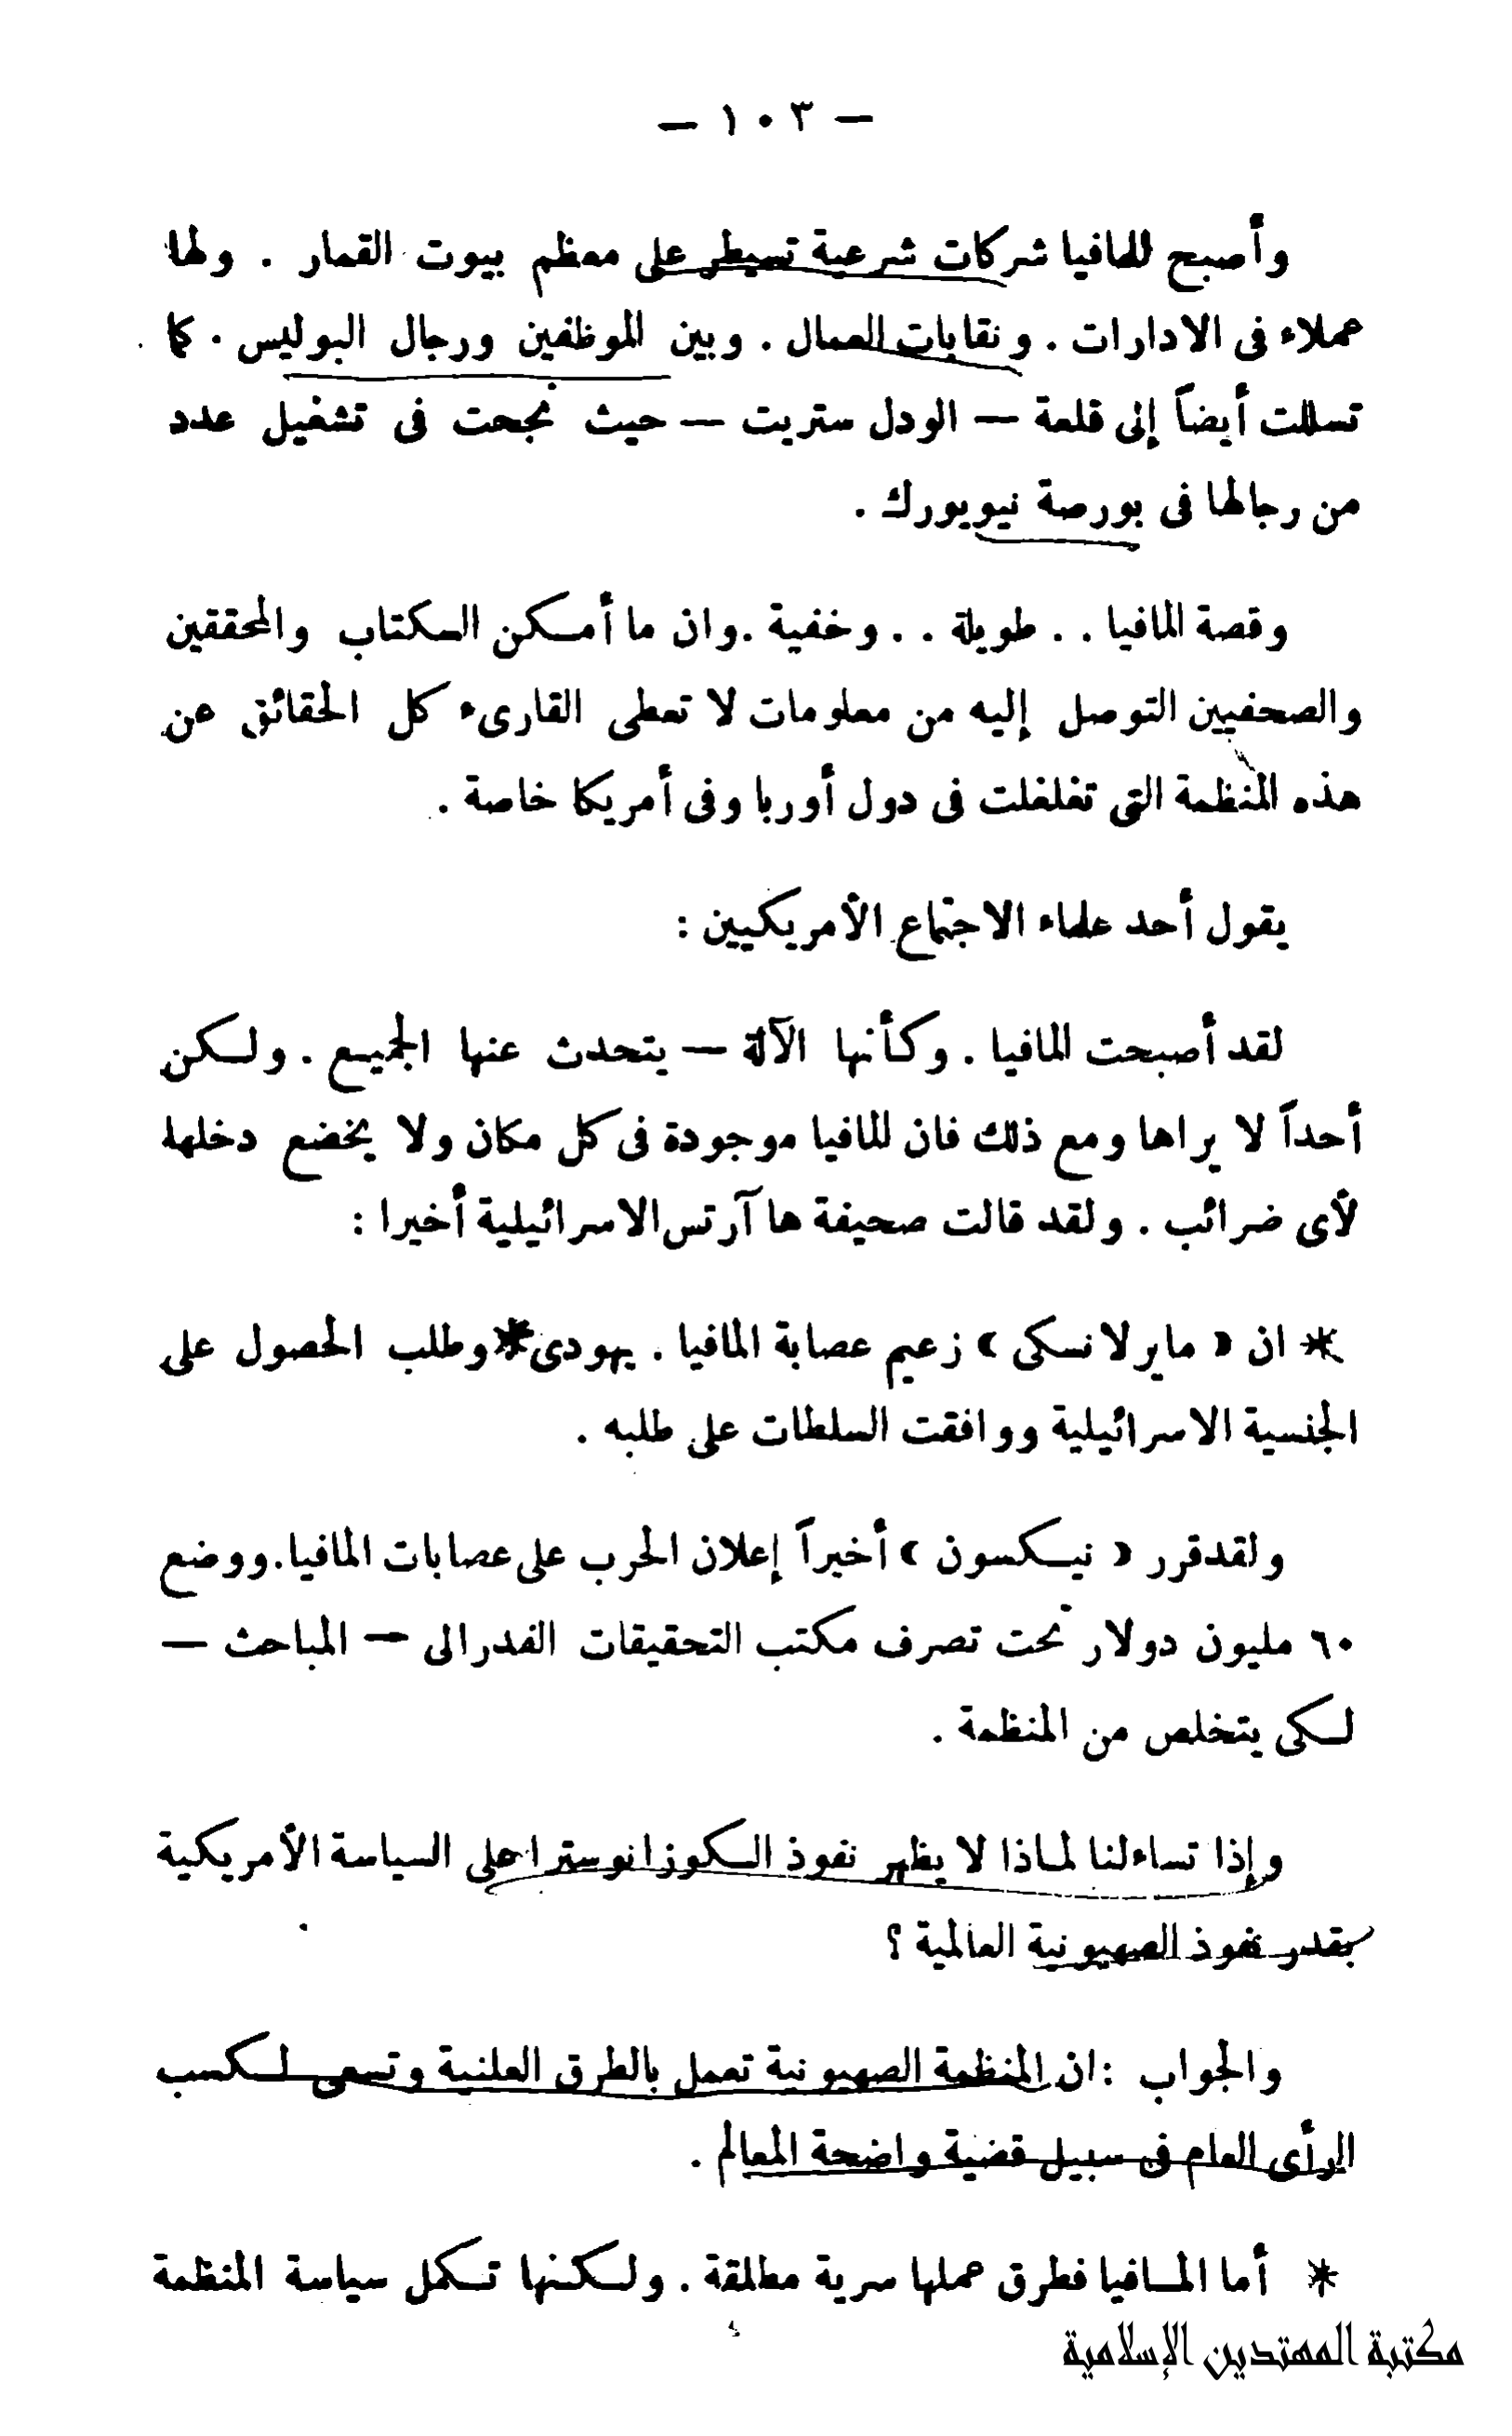 — ١٠٣ —
وأصبح للمافيا شركات شرعية تسيطر على معظم بيوت القمار . ولها
عملاء فى الادارات . ونقابات العمال . وبين الموظفين ورجال البوليس . كما
تسللت أيضاً إلى قلعة — الودل ستريت — حيث نجحت فى تشغيل عدد
من رجالها فى بورصة نيويورك .
وقصة المافيا . . طويلة . . وخفية .وان ما أمكن الكتاب والمحققين
والصحفيين التوصل إليه من معلومات لا تعطى القارىء كل الحقائق عن
هذه المنظمة التى تغلغلت فى دول أوربا وفى أمريكا خاصة .
يقول أحد علماء الاجتماع الأمريكيين :
لقد أصبحت المافيا . وكأنها الآلة — يتحدث عنها الجميع . ولكن
أحداً لا يراها ومع ذلك فان للمافيا موجودة فى كل مكان ولا يخضع دخلها
لأى ضرائب . ولقد قالت صحيفة هاآرتس الاسرائيلية أخيرا :
* ان « ماير لانسكى » زعيم عصابة المافيا . يهودى * وطلب الحصول على
الجنسية الاسرائيلية ووافقت السلطات على طلبه .
ولقدقرر « نيكسون » أخيراً إعلان الحرب على عصابات المافيا.ووضع
٦٠ مليون دولار تحت تصرف مكتب التحقيقات الفدرالى — المباحث —
لكى يتخلص من المنظمة .
وإذا تساءلنا لماذا لا يظهر نفوذ الكوزانوسترا على السياسة الأمريكية
بقدر نفوذ الصهيونية العالمية ؟
والجواب :ان المنظمة الصهيونية تعمل بالطرق العلنية وتسعى لكسب
الرأى العام فى سبيل قضية واضحة المعالم .
* أما المافيا فطرق عملها سرية مطلقة . ولكنها تكمل سياسة المنظمة
مكتبة المهتدين الإسلامية